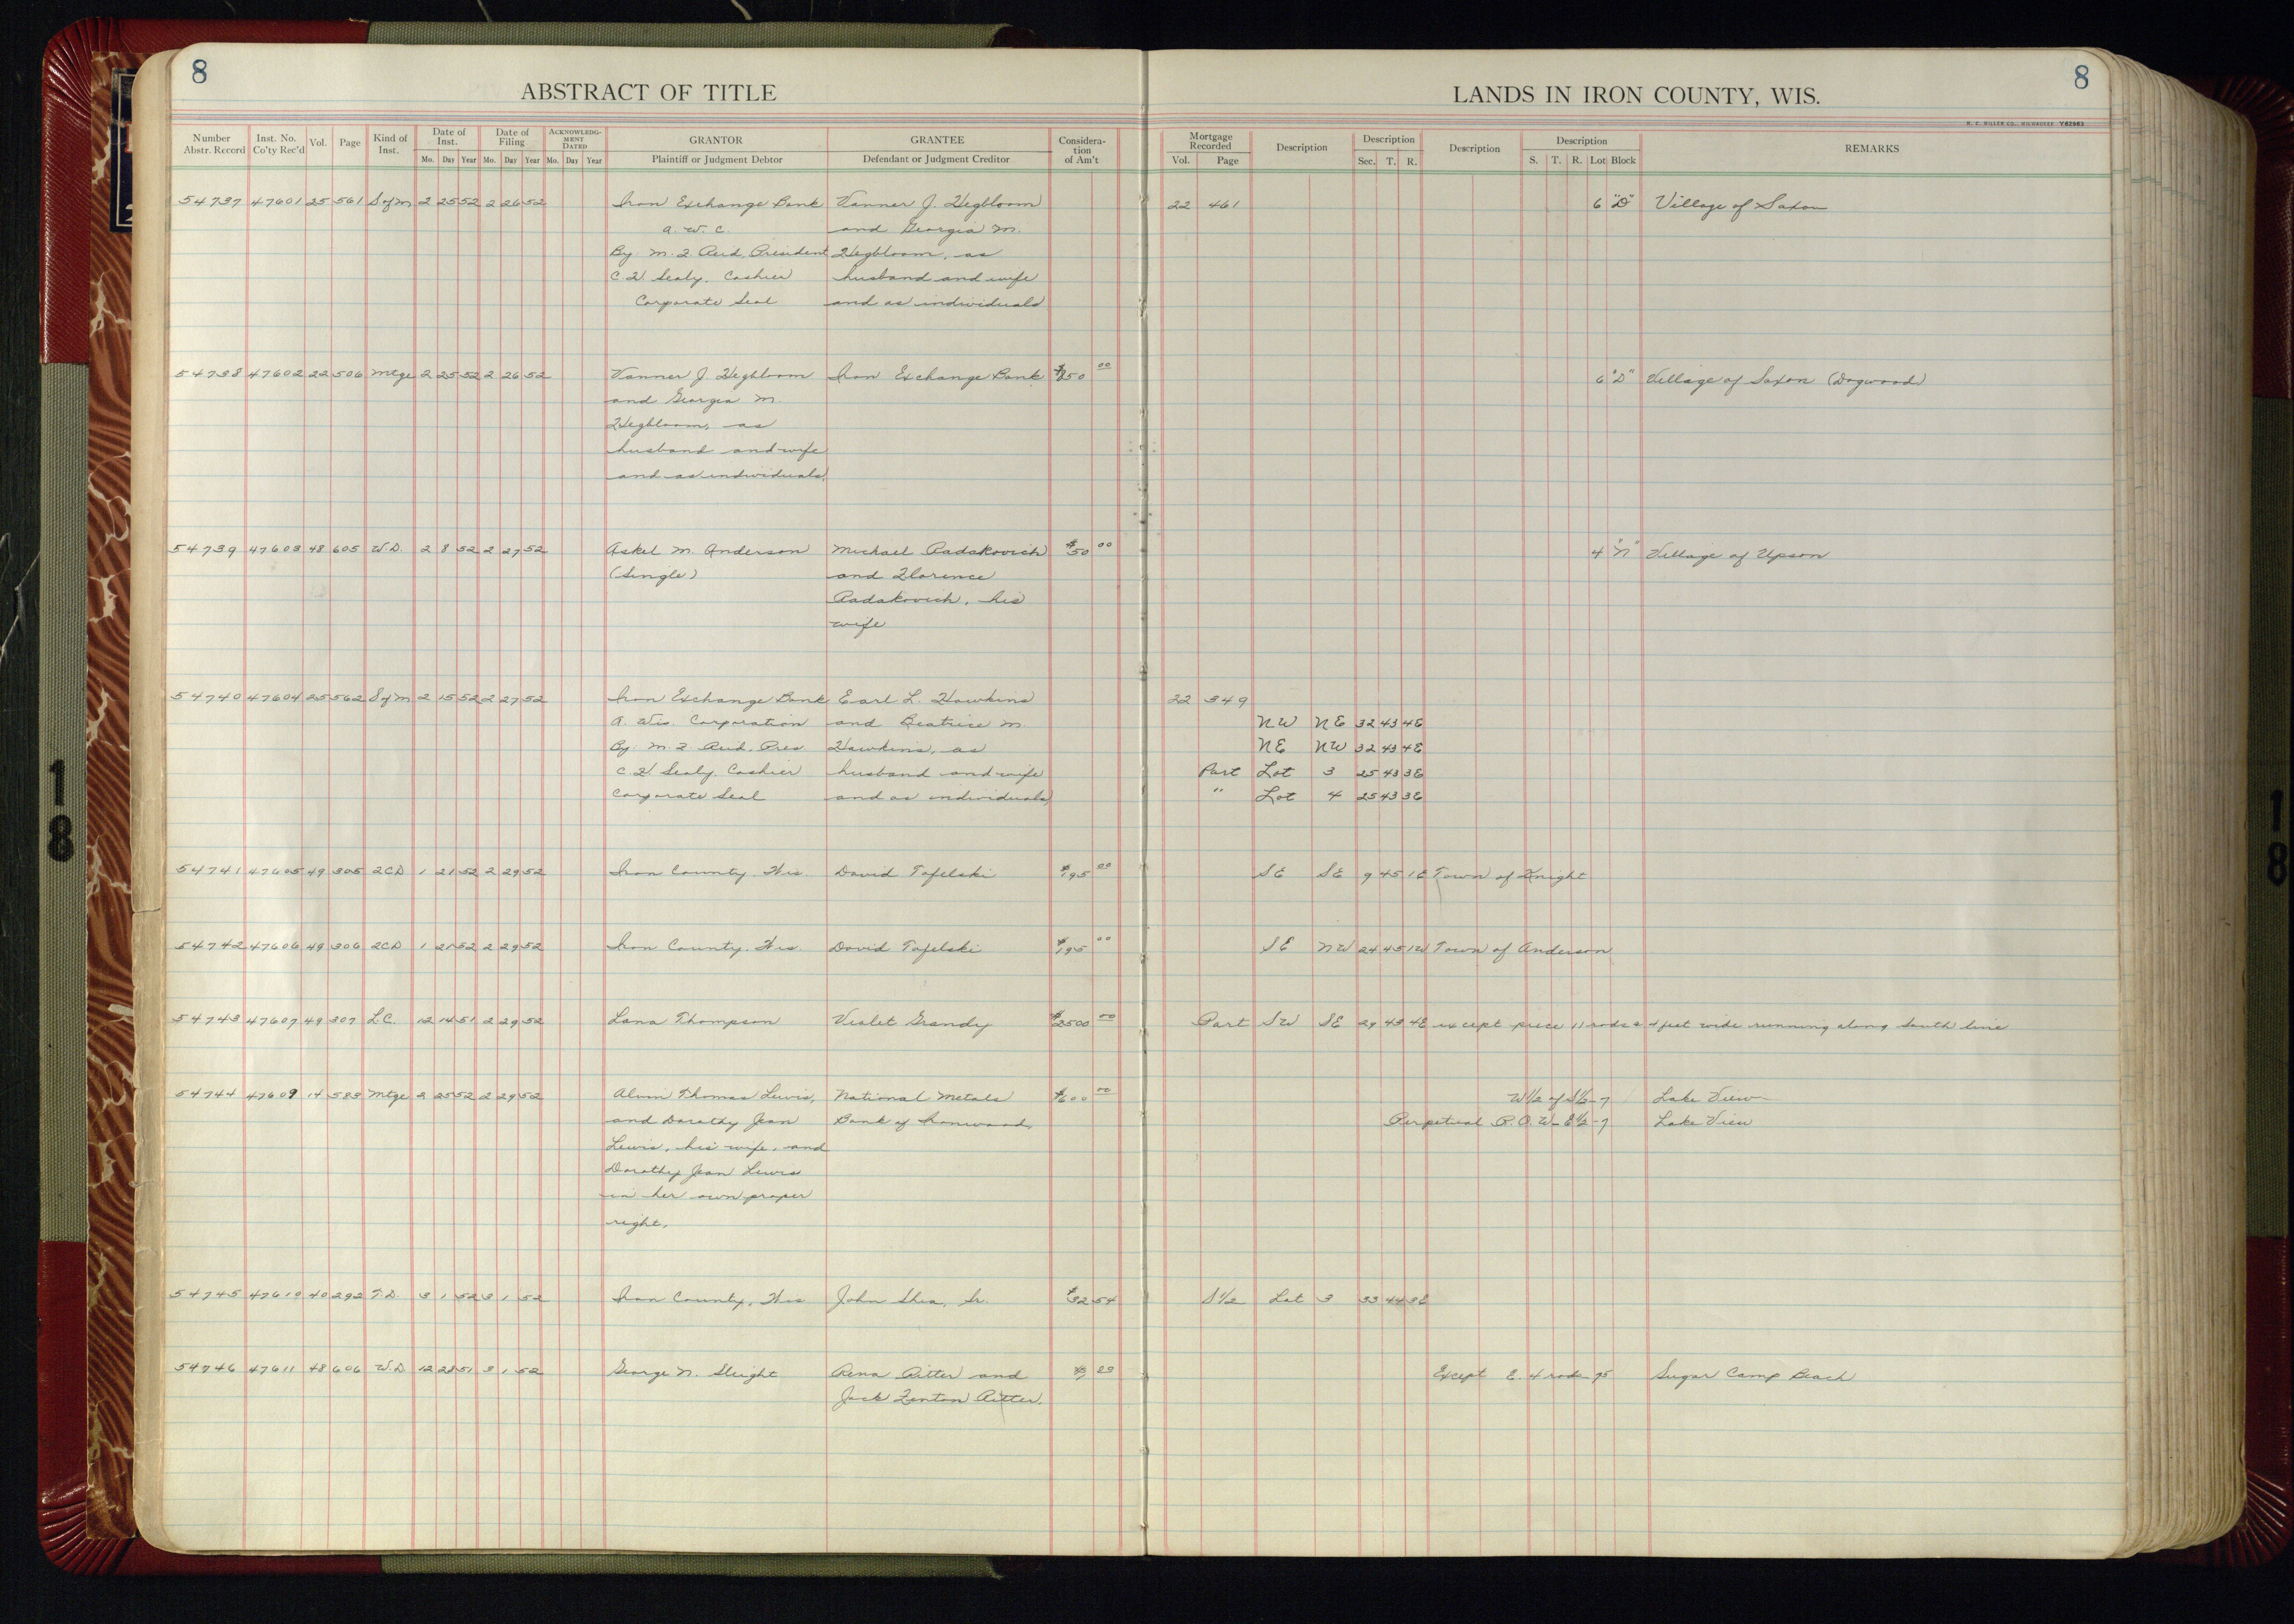 8
8
ABSTRACT OF TITLE
LANDS IN IRON COUNTY, WIS.
H. C. MILLER CO., MILWAUKEE Y62963
Number Abstr. Record Inst. No. Co'ty Rec'd Vol. Page Kind of Inst. Date of Inst. Mo. Day Year Date of Filing Mo. Day Year ACKNOWLEDGMENT DATED Mo. Day Year GRANTOR Plaintiff or Judgment Debtor GRANTEE Defendant or Judgment Creditor Considera-tion of Am't Mortgage Recorded Vol. Page Description Description Sec. T. R. Description Description S. T. R. Lot Block REMARKS
54737 47601 25 561 S of M 2 25 52 2 26 52 Iron Exchange Bank Vanner J. Hegbloom 22 461 6 "D" Village of Saxon
a. W. C. and Georgia M.
By. M. F. Reid, President Hegbloom, as
C. H. Sealy. Cashier husband and wife
Corporate Seal and as individuals
54738 47602 22 506 Mtge 2 25 52 2 26 52 Vanner J. Hegbloom Iron Exchange Bank 00 6 "D" Village of Saxon (Dogwood)
and Georgia M.
Hegbloom, as
husband and wife
and as individuals,
54739 47603 48 605 W.D. 2 8 52 2 27 52 Askel M. Anderson Michael Radakovich $50 00 4 "N" Village of Upson
(Single) and Florence
Radakovich, his
wife
54740 47604 25 562 S of M 2 15 52 2 27 52 Iron Exchange Bank Earl L. Hawkins 22 349
A. Wis. Corporation and Beatrice M. NW NE 32 43 4E
By. M. F. Reid, Pres. Hawkins, as NE NW 32 43 4E
C. H. Sealy. Cashier husband and wife Part Lot 3 25 43 3E
Corporate Seal and as individuals, " Lot 4 25 43 3E
54741 47605 49 305 2CD 1 21 52 2 29 52 Iron County, Wis. David Tafelski $195 00 SE SE 9 45 1E Town of Knight
54742 47606 49 306 2CD 1 21 52 2 29 52 Iron County, Wis. David Tafelski $195 00 SE NW 24 45 1W Town of Anderson
54743 47607 49 307 L.C. 12 14 51 2 29 52 Lana Thompson Violet Grandy $2500 00 Part SW SE 29 43 4E except piece 11 rods & 4 feet wide running along South line
54744 47609 14 583 Mtge 2 25 52 2 29 52 Alvin Thomas Lewis, National Metals $600 00 W½ of S½-7 Lake View
and Dorothy Jean Bank of Ironwood, Perpetual R.O.W-E½-7 Lake View
Lewis, his wife, and
Dorothy Jean Lewis
in her own proper
right,
54745 47610 40 292 T.D. 3 1 52 3 1 52 Iron County, Wis John Shea, Sr. $32 54 S½ Lot 3 33 44 3E
54746 47611 48 606 W.D. 12 28 51 3 1 52 George N. Sleight Rena Ritter and Except E. 4 rods 95 Sugar Camp Beach
Jack Fenton Ritter.
18
18